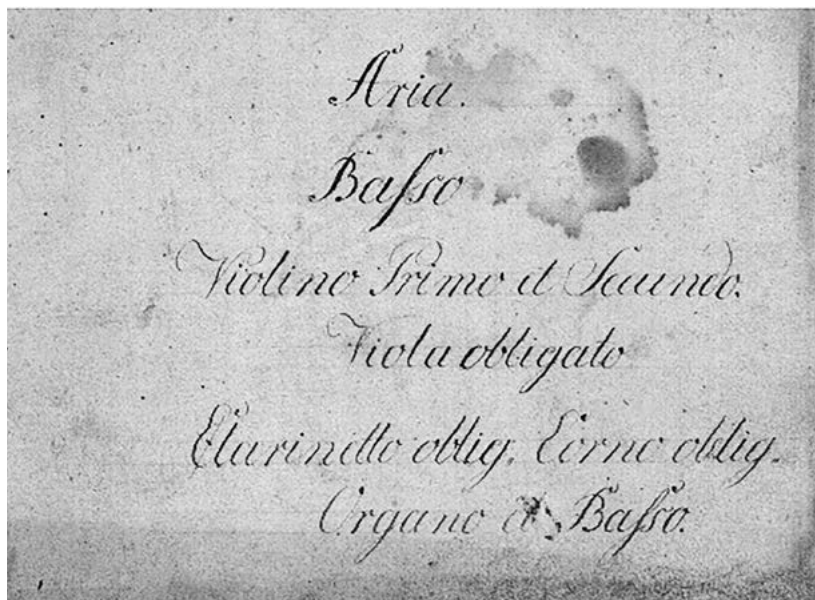 Aria.
Baſso
Violino Primo et Secundo.
Viola obligato
Clarinetto oblig. Corno oblig.
Organo et Baſso.